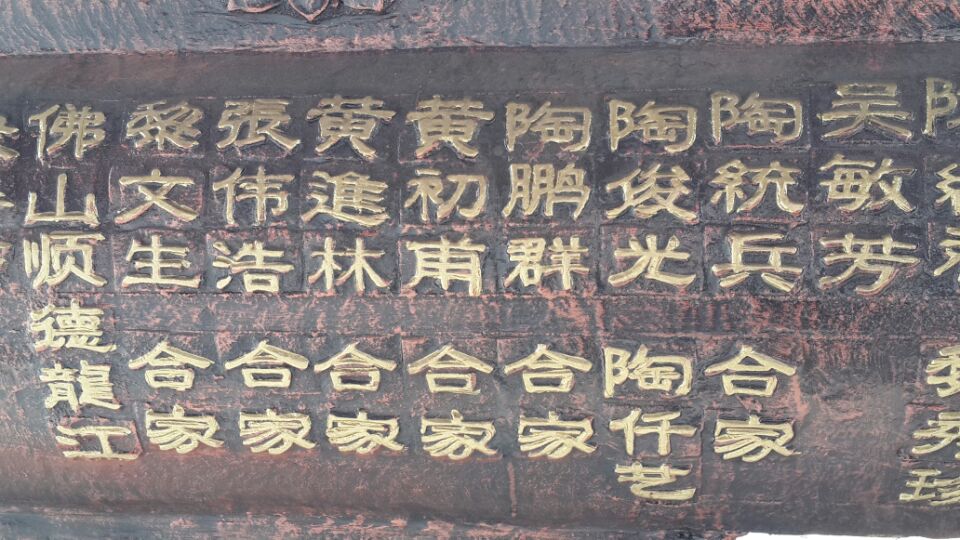 吴敏芳
陶統兵 合家
陶俊光 陶仟艺
陶鹏群 合家
黄初甫 合家
黄進林 合家
張伟浩 合家
黎文生 合家
佛山顺德龍江